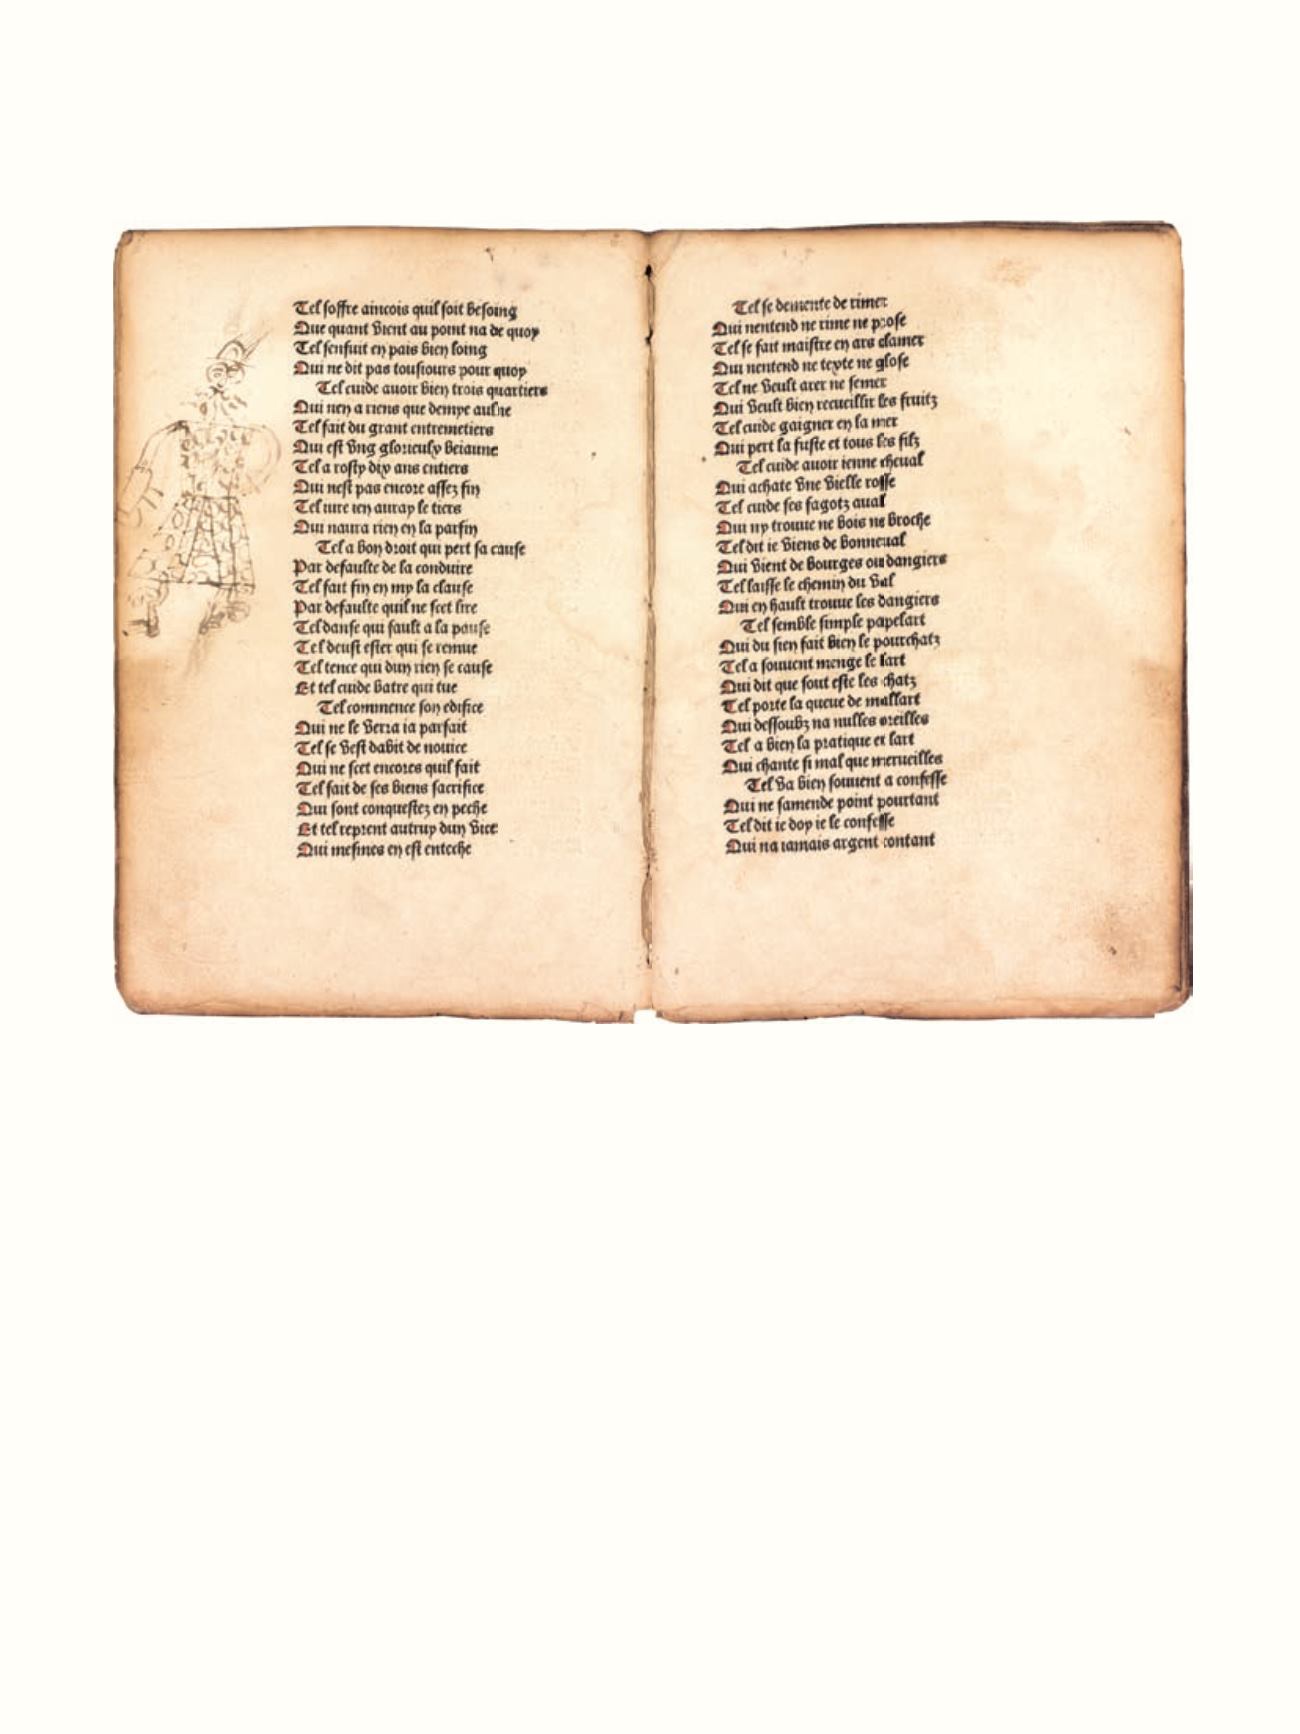 Tel soffre aincois quil soit besoing
Que quant vient au point na de quoy
Tel senfuit en pais bien loing
Qui ne dit pas tousiours pour quoy
Tel cuide auoir bien trois quartiers
Qui nen a riens que demye aulne
Tel fait du grant entremetiers
Qui est vng glorieulx beiaune
Tel a rosty dix ans entiers
Qui nest pas encore assez fin
Tel iure ien auray le tiers
Qui naura rien en la parfin
Tel a bon droit qui pert sa cause
Par defaulte de la conduire
Tel fait fin en my la clause
Par defaulte quil ne scet lire
Tel danse qui fault a la pause
Tel deust ester qui se remue
Tel tence qui dun rien se cause
Et tel cuide batre qui tue
Tel commence son edifice
Qui ne le verra ia parfait
Tel se vest dabit de nouice
Qui ne scet encores quil fait
Tel fait de ses biens sacrifice
Qui sont conquestez en peche
Et tel reprent autruy dun vice
Qui mesmes en est enteche
Tel se demente de rimer
Qui nentend ne rime ne prose
Tel se fait maistre en ars clamer
Qui nentend ne texte ne glose
Tel ne veult arer ne semer
Qui veult bien recueillir les fruitz
Tel cuide gaigner en la mer
Qui pert la fuste et tous les filz
Tel cuide auoir ienne cheual
Qui achate vne vielle rosse
Tel cuide ses fagotz aual
Qui ny trouue ne bois ne broche
Tel dit ie viens de bonneual
Qui vient de bourges ou dangiers
Tel laisse le chemin du val
Qui en hault trouue les dangiers
Tel semble simple papelart
Qui du sien fait bien le pourchatz
Tel a souuent menge le lart
Qui dit que sout este les chatz
Tel porte la queue de mallart
Qui dessoubz na nulles oreilles
Tel a bien la pratique et lart
Qui chante si mal que merueilles
Tel va bien souuent a confesse
Qui ne samende point pourtant
Tel dit ie doy ie le confesse
Qui na iamais argent contant